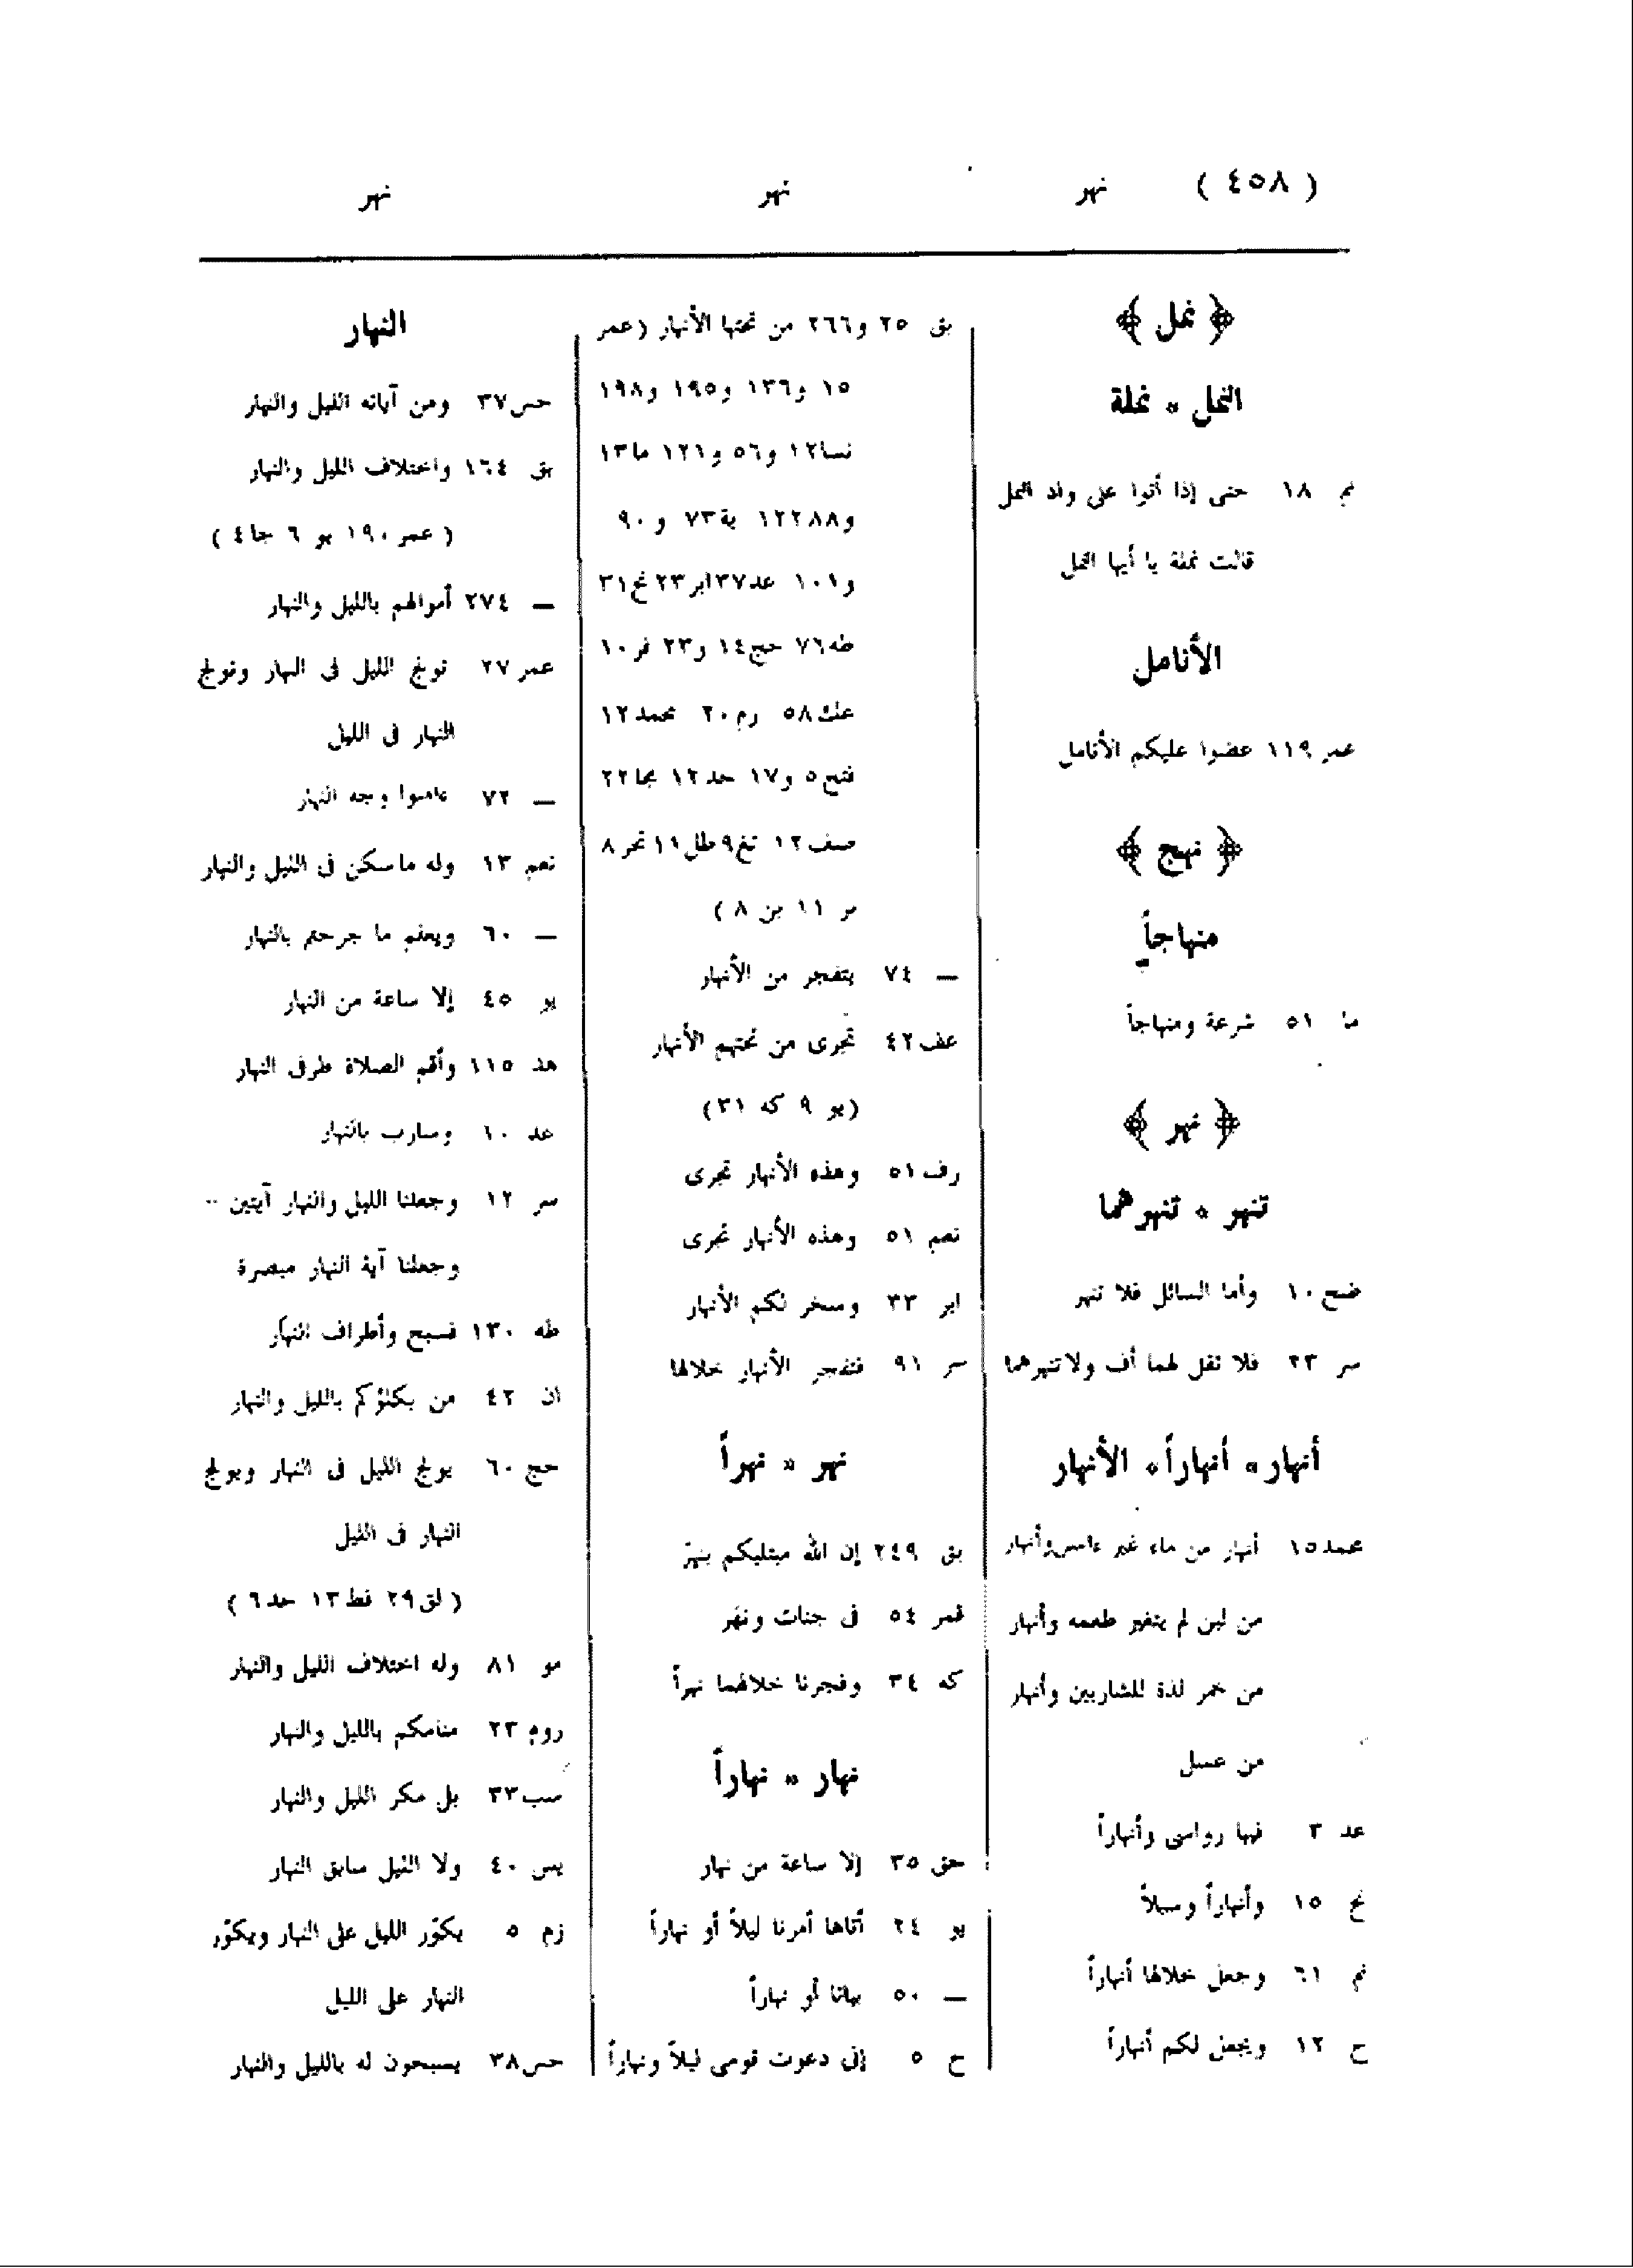 ( ٤٥٨ ) نهر نهر نهر
﴿ نمل ﴾
النمل * نملة
نم ١٨ حتى إذا أتوا على واد النمل
قالت نملة يا أيها النمل
الأنامل
عمر ١١٩ عضوا عليكم الأنامل
﴿ نهج ﴾
منهاجاً
ما ٥١ شرعة ومنهاجاً
﴿ نهر ﴾
تنهر * تنهرهما
ضح ١٠ وأما السائل فلا تنهر
سر ٢٣ فلا تقل لهما أف ولا تنهرهما
أنهار * أنهاراً * الأنهار
محمد ١٥ أنهار من ماء غير ءاسن وأنهار
من لبن لم يتغير طعمه وأنهار
من خمر لذة للشاربين وأنهار
من عسل
عد ٣ فيها رواسى وأنهاراً
نح ١٥ وأنهاراً وسبلاً
نم ٦١ وجعل خلالها أنهاراً
ح ١٢ ويجعل لكم أنهاراً
بق ٢٥ و٢٦٦ من تحتها الأنهار (عمر
١٥ و١٣٦ و١٩٥ و١٩٨
نسا١٢ و٥٦ و١٢١ ما١٣
و١٢٢٨٨ بة٧٣ و ٩٠
و١٠١ عد٣٧ ابر٢٣ نح٣١
طه٧٦ حج١٤ و٢٣ فر١٠
عنك٥٨ زم٢٠ محمد١٢
فتح٥ و١٧ حد١٢ مجا٢٢
صف١٢ تغ٩ طل١١ تحر٨
بر ١١ بن ٨ )
— ٧٤ يتفجر من الأنهار
عف٤٢ تجرى من تحتهم الأنهار
(يو ٩ كه ٣١)
رف٥١ وهذه الأنهار تجرى
نعم ٥١ وهذه الأنهار تجرى
ابر ٣٢ وسخر لكم الأنهار
سر ٩١ فتفجر الأنهار خلالها
نهر * نهراً
بق ٢٤٩ إن الله مبتليكم بنهر
قمر ٥٤ فى جنات ونهر
كه ٣٤ وفجرنا خلالهما نهراً
نهار * نهاراً
حق ٣٥ إلا ساعة من نهار
يو ٢٤ أتاها أمرنا ليلاً أو نهاراً
— ٥٠ بياتا أو نهاراً
ح ٥ إنى دعوت قومى ليلاً ونهاراً
النهار
حس٣٧ ومن آياته الليل والنهار
بق ١٦٤ واختلاف الليل والنهار
( عمر ١٩٠ يو ٦ جا٤ )
— ٢٧٤ أموالهم بالليل والنهار
عمر ٢٧ تولج الليل فى النهار وتولج
النهار فى الليل
— ٧٢ ءامنوا وجه النهار
نعم ١٣ وله ما سكن فى الليل والنهار
— ٦٠ ويعلم ما جرحتم بالنهار
يو ٤٥ إلا ساعة من النهار
هد ١١٥ وأقم الصلاة طرفى النهار
عد ١٠ وسارب بالنهار
سر ١٢ وجعلنا الليل والنهار آيتين ..
وجعلنا آية النهار مبصرة
طه ١٣٠ فسبح وأطراف النهار
ان ٤٢ من يكلؤكم بالليل والنهار
حج ٦٠ يولج الليل فى النهار ويولج
النهار فى الليل
( لق٢٩ فط١٣ حد٦ )
مو ٨١ وله اختلاف الليل والنهار
روم ٢٣ منامكم بالليل والنهار
سب٣٣ بل مكر الليل والنهار
يس ٤٠ ولا الليل سابق النهار
زم ٥ يكوّر الليل على النهار ويكوّر
النهار على الليل
حس٣٨ يسبحون له بالليل والنهار